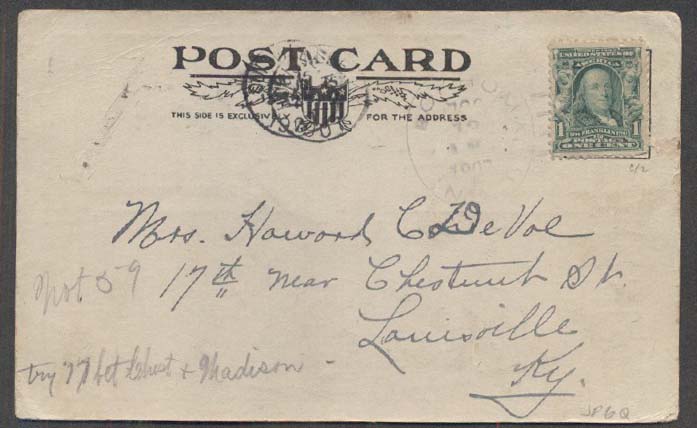 POST CARD
THIS SIDE IS EXCLUSIVELY FOR THE ADDRESS
UNITED STATES OF AMERICA
1 1
POSTAGE
ONE CENT
c/2
Mrs. Howard C DeVol
17th near Chestnut St.
Louisville
Ky.
Not 59
try 17 bet Chest & Madison -
JP6Q